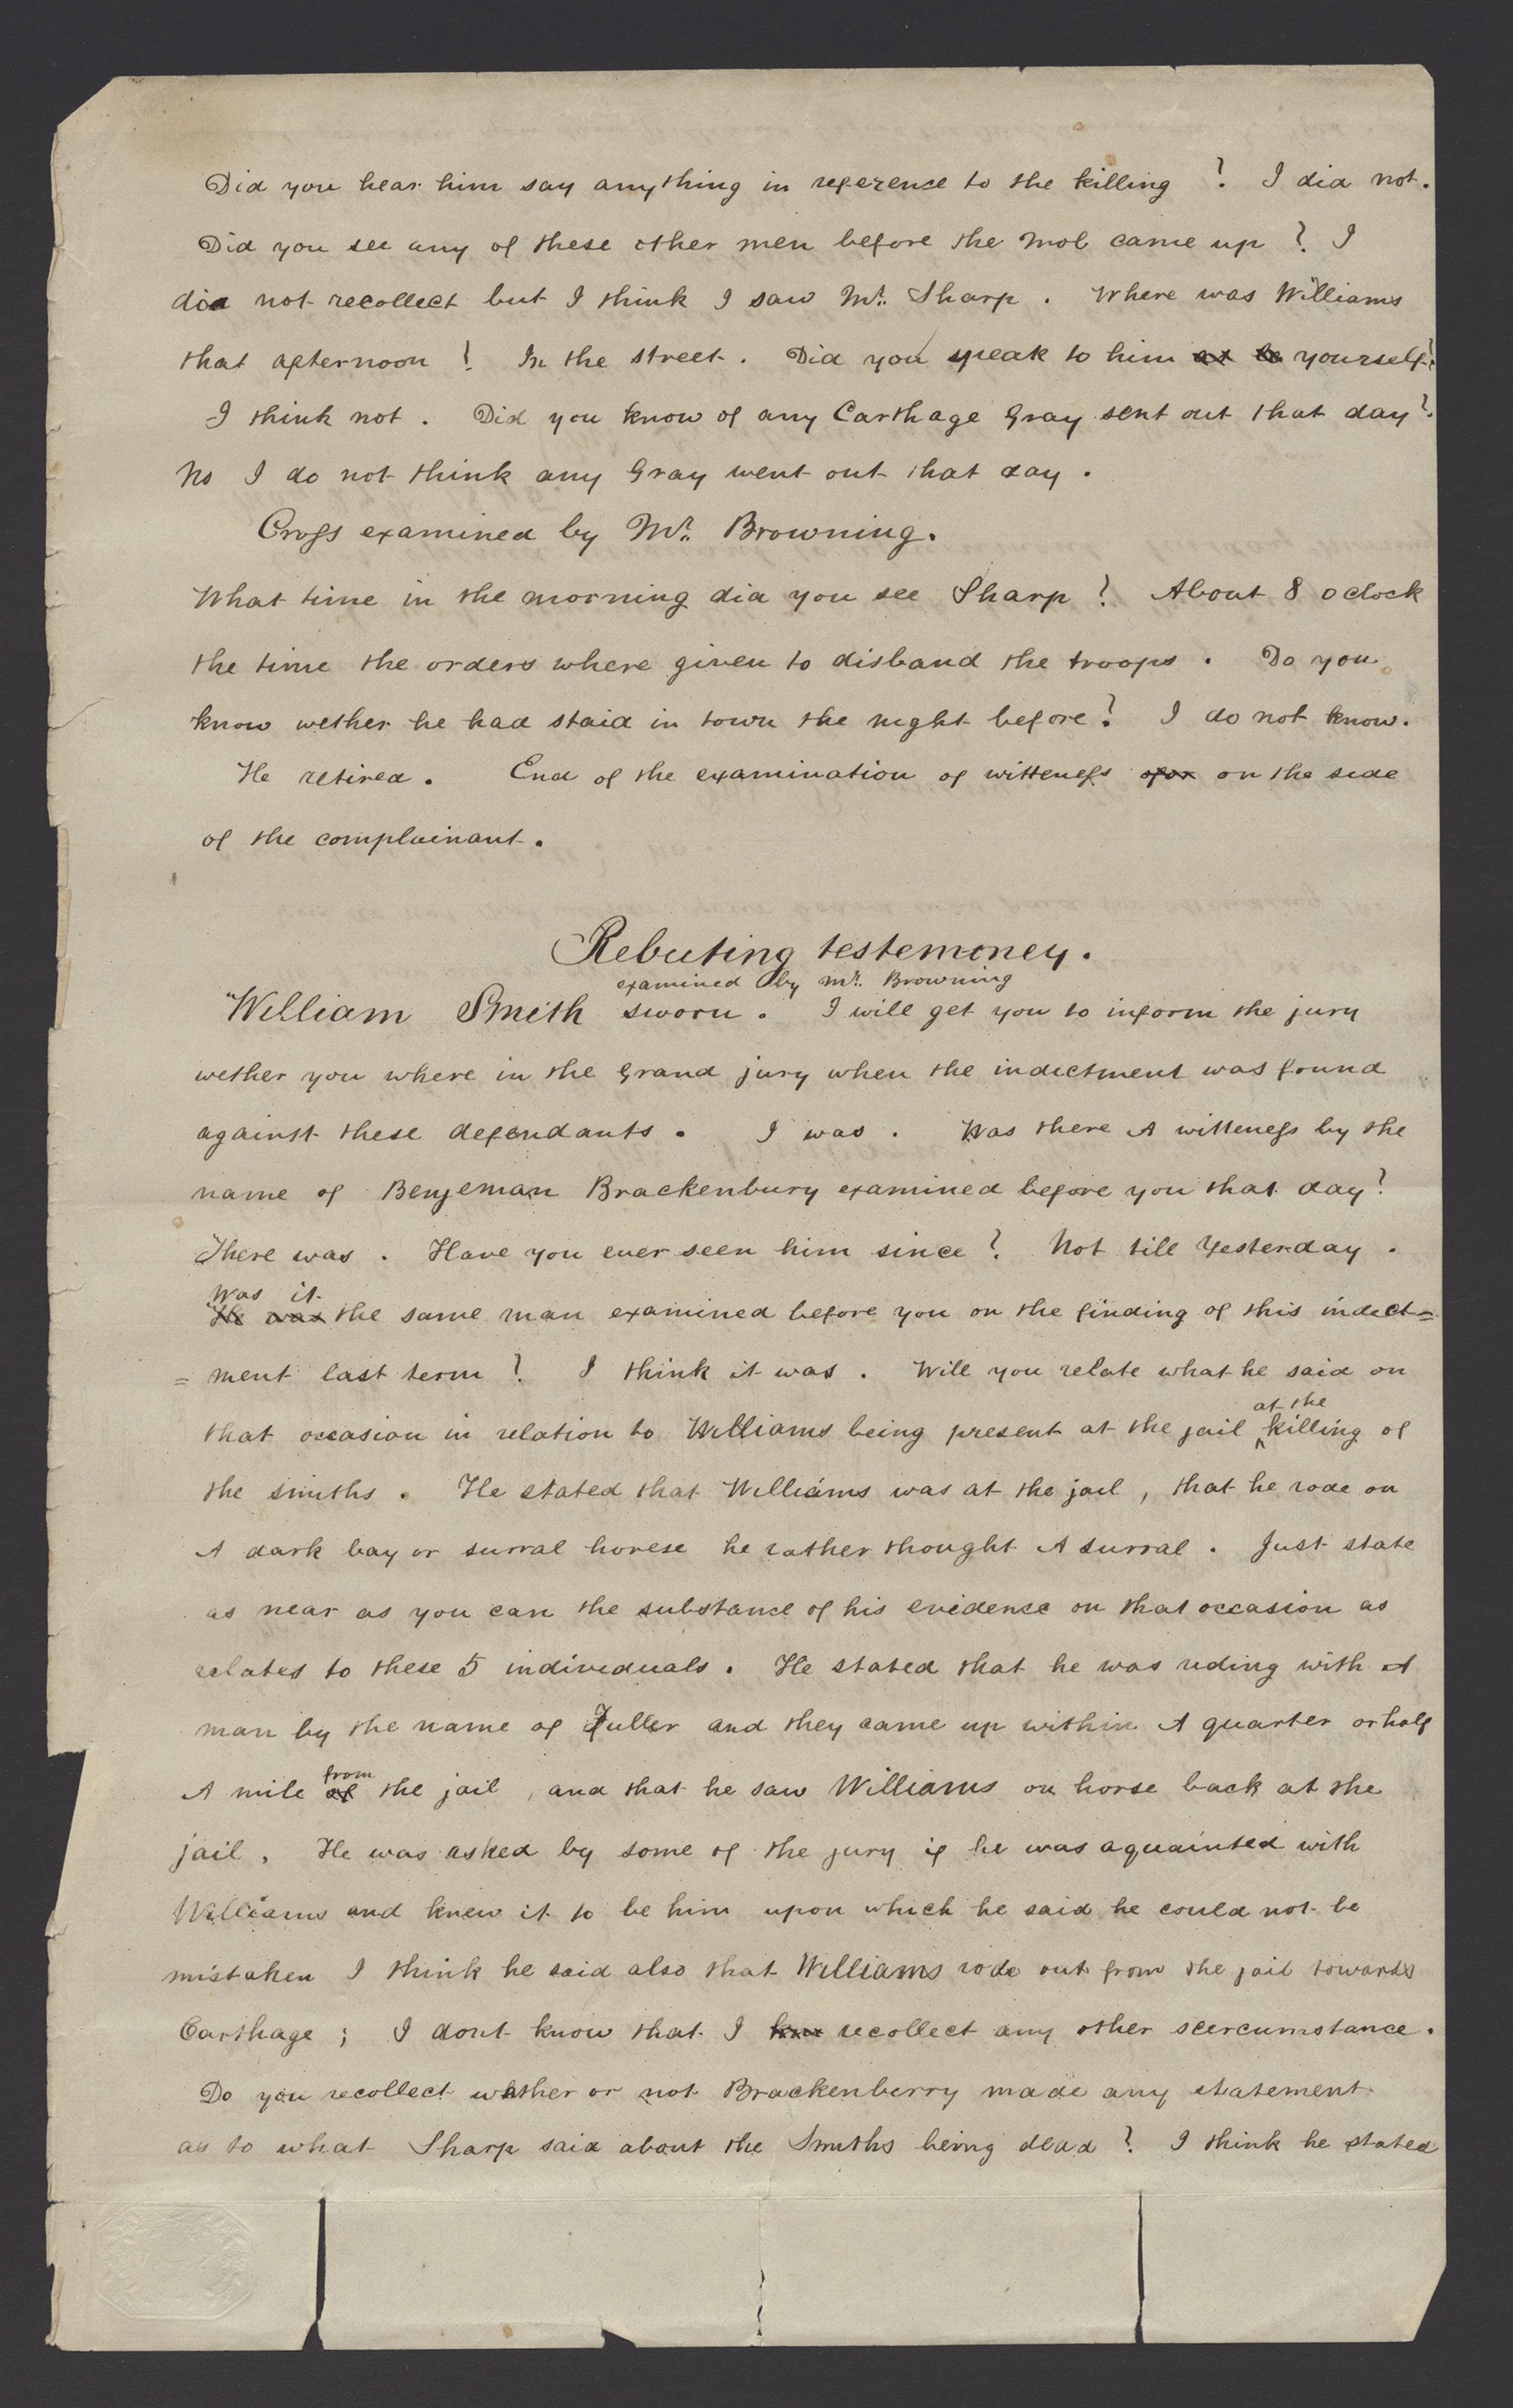 Did you hear him say anything in reference to the killing ? I did not.
Did you see any of these other men before the mob came up ? I
did not recollect but I think I saw Mr. Sharp . Where was Williams
that afternoon ? In the street . Did you speak to him yourself ?
I think not . Did you know of any Carthage Gray sent out that day ?
No I do not think any Gray went out that day .
Cross examined by Mr. Browning .
What time in the morning did you see Sharp ? About 8 oclock
the time the orders where given to disband the troops . Do you
know wether he had staid in town the night before ? I do not know .
He retired . End of the examination of witteness on the side
of the complainant .
Rebuting testemoney .
examined by Mr. Browning
William Smith sworn . I will get you to inform the jury
wether you where in the Grand jury when the indictment was found
against these defendants . I was . Was there A witteness by the
name of Benjeman Brackenbury examined before you that day ?
There was . Have you ever seen him since ? Not till Yesterday .
Was it
He was the same man examined before you on the finding of this indict=
= ment last term ? I think it was . Will you relate what he said on
at the
that occasion in relation to Williams being present at the jail ^ killing of
the smiths . He stated that Williams was at the jail , that he rode on
A dark bay or surral horese he rather thought A surral . Just state
as near as you can the substance of his evidence on that occasion as
relates to these 5 individuals . He stated that he was riding with A
man by the name of Fuller and they came up within A quarter or half
from
A mile of the jail , and that he saw Williams on horse back at the
jail , He was asked by some of the jury if he was aquainted with
Williams and knew it to be him upon which he said he could not be
mistaken I think he said also that Williams rode out from the jail towards
Carthage ; I dont know that I recollect any other scercumstance .
Do you recollect whether or not Brackenberry made any statement
as to what Sharp said about the Smiths being dead ? I think he stated